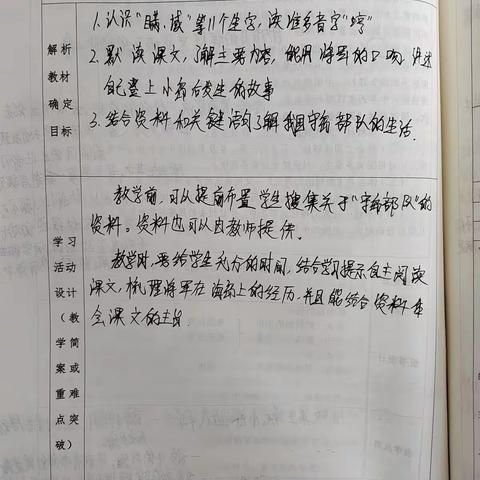 解析
教材
确定
目标
1.认识"瞒、域"等11个生字,读准多音字"哼"
2.默读课文,了解主要内容,能用将军的口吻讲述
自己登上小岛后发生的故事
3.结合资料和关键语句了解我国守岛部队的生活.
教学前,可以提前布置学生搜集关于"守岛部队"的
资料。资料也可以由教师提供.
教学时,要给学生充分的时间,结合学习提示自主阅读
课文,梳理将军在海岛上的经历,并且能结合资料体
会课文的主旨.
学习
活动
设计
(教
学简
案或
重难
点突
破)